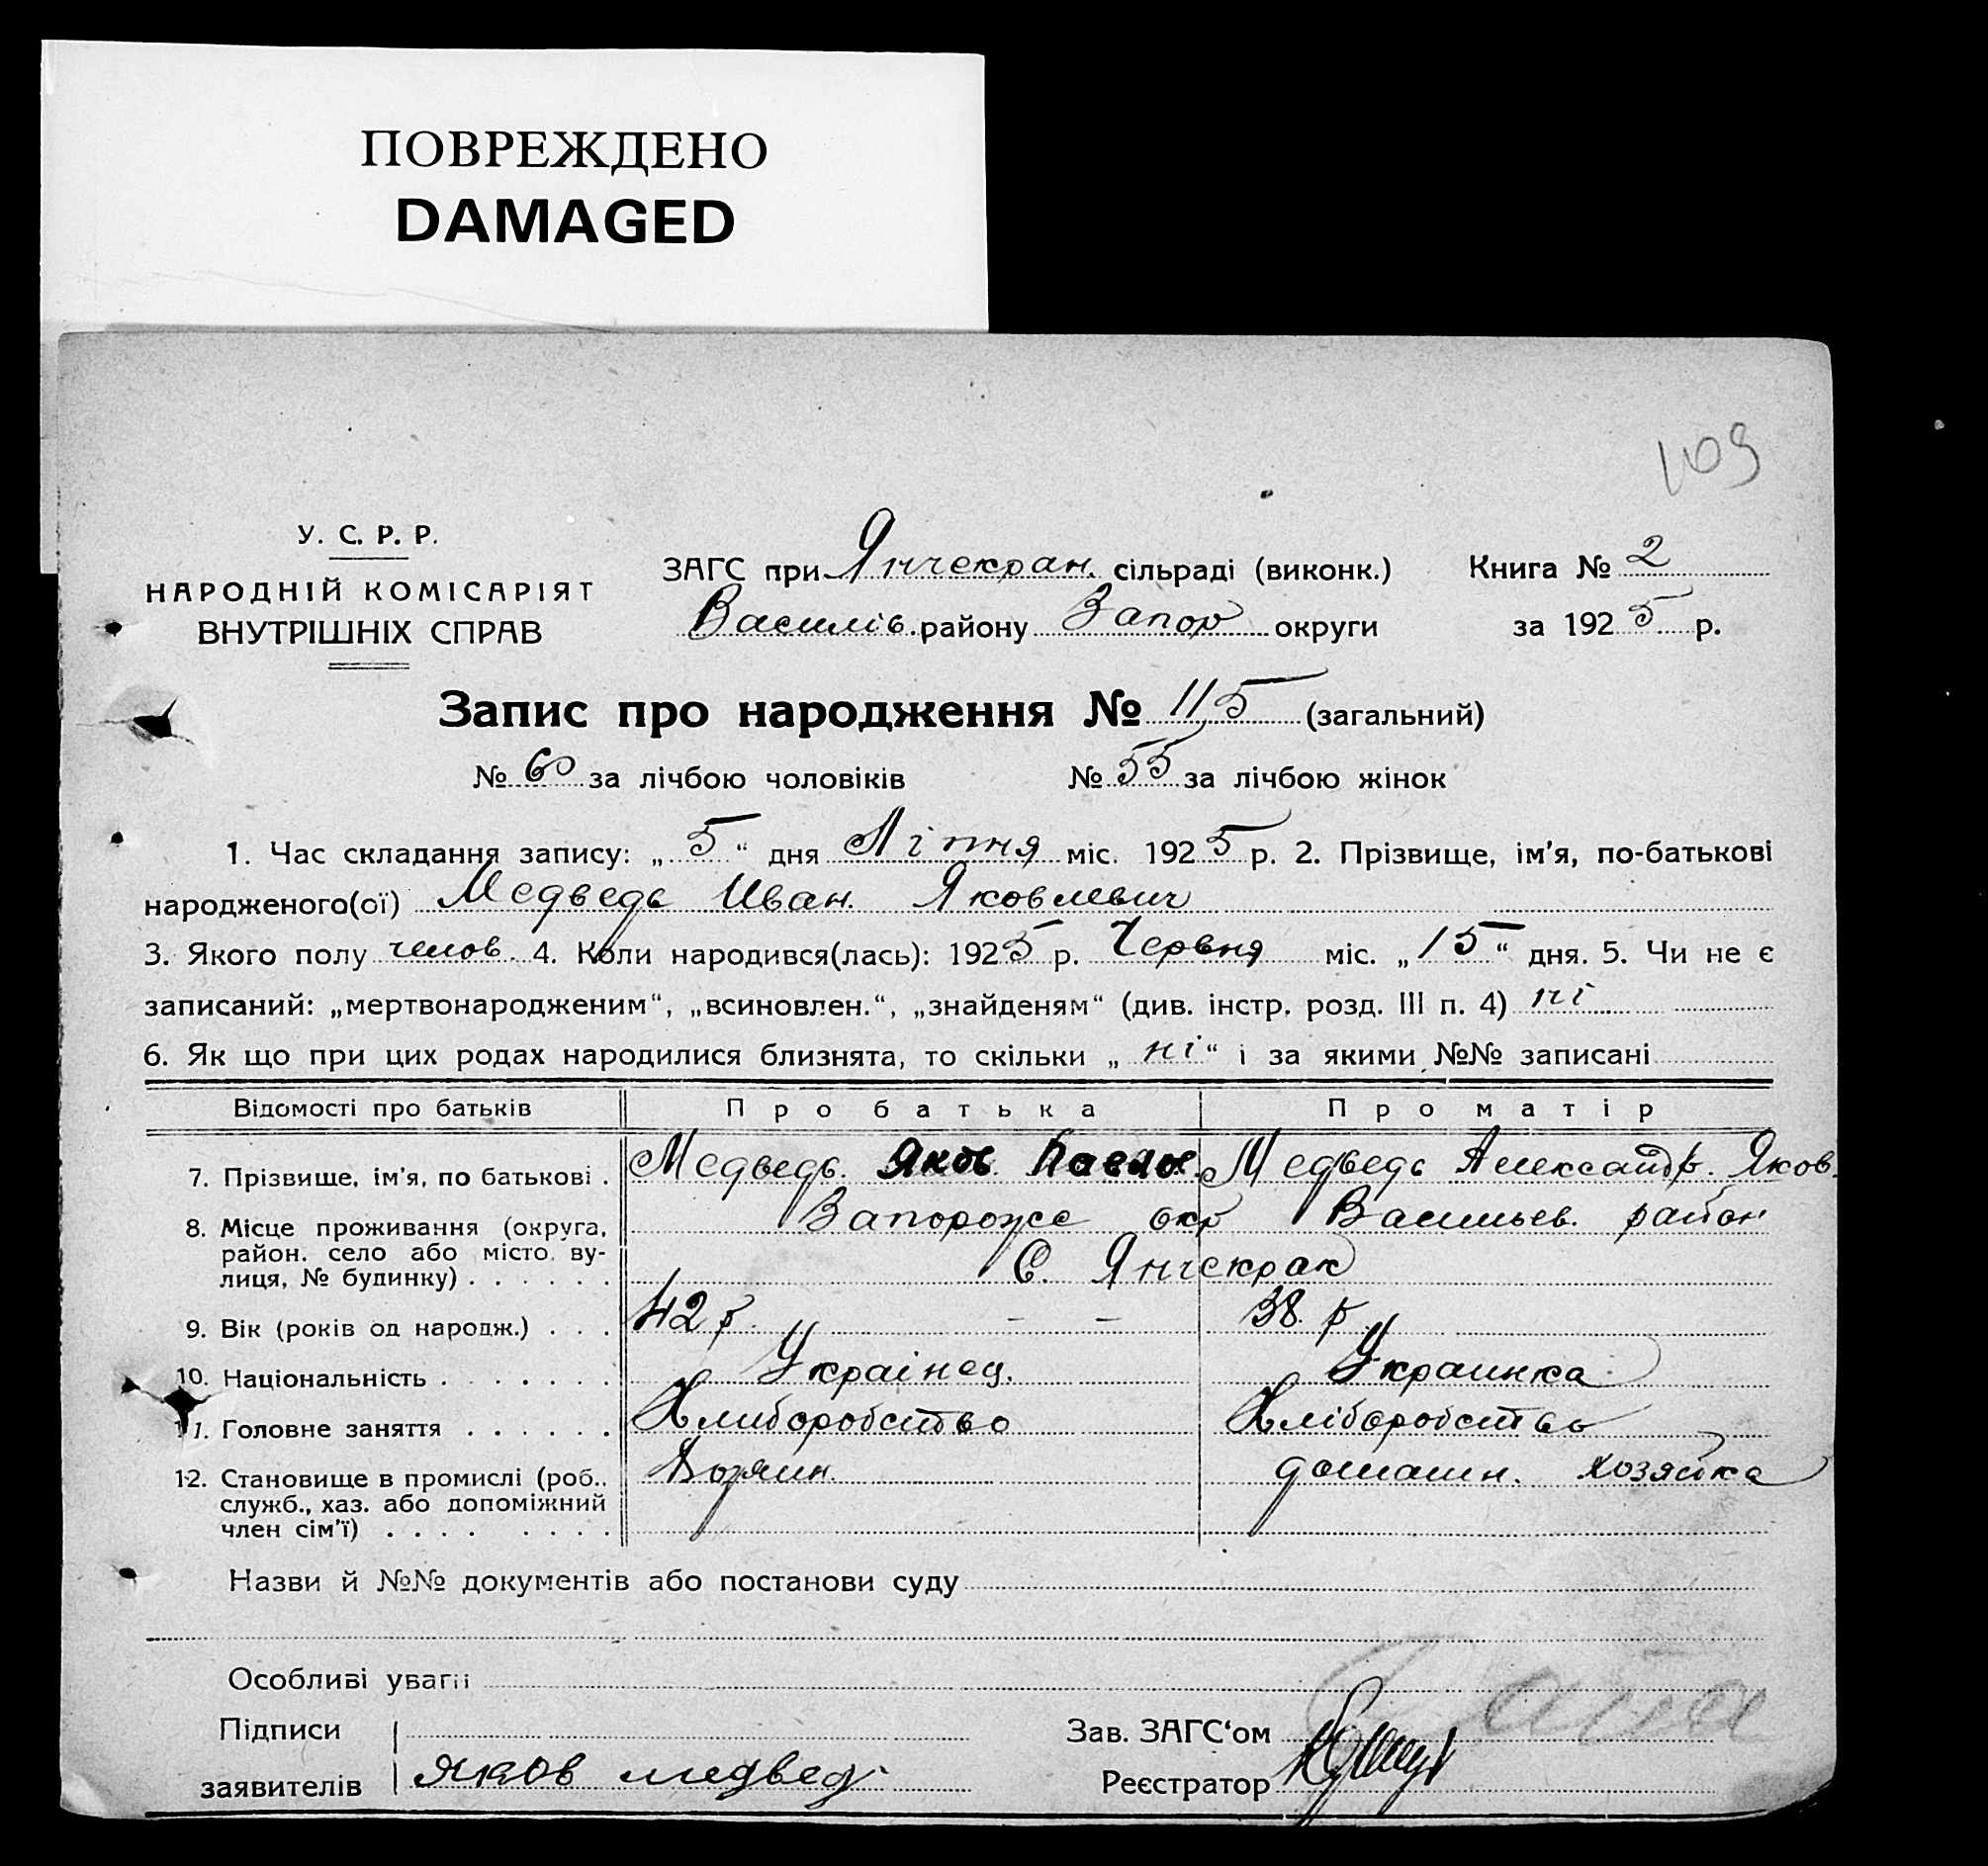 ПОВРЕЖДЕНО
DAMAGED
109
У. С. Р. Р.
НАРОДНІЙ КОМІСАРІЯТ
ВНУТРІШНІХ СПРАВ
ЗАГС при Янчекран. сільраді (виконк.)
Василів. району Запор округи
Книга № 2
за 1925 р.
Запис про народження № 115 (загальний)
№ 60 за лічбою чоловіків № 55 за лічбою жінок
1. Час складання запису: „5“ дня Ліпня міс. 1925 р. 2. Прізвище, ім'я, по-батькові
народженого(ої) Медведь Иван. Яковлевич
3. Якого полу челов. 4. Коли народився(лась): 1925 р. Червня міс. „15“ дня. 5. Чи не є
записаний: „мертвонародженим“, „всиновлен.“, „знайденям“ (див. інстр. розд. III п. 4) ні
6. Як що при цих родах народилися близнята, то скільки „ні“ і за якими №№ записані
Відомості про батьків Про батька Про матір
7. Прізвище, ім'я, по батькові . Медведь. Яков. Павлов. Медведь Александр. Яков.
8. Місце проживання (округа, Запорожс окр Васильев. район
район. село або місто, ву-
лиця, № будинку) . . . . . . С. Янчекрак
9. Вік (років од народж.) . . . 42 р. – – 38. р.
10. Національність . . . . . . . Украінец. Украинка
11. Головне заняття . . . . . . Хлиборобство Хліборобство
12. Становище в промислі (роб.. домашн. хозяйка
служб., хаз. або допоміжний
член сім'ї) . . . . . . . .
Назви й №№ документів або постанови суду
Особливі уваги
Підписи
заявителів Яков медвед
Зав. ЗАГС‘ом
Реєстратор